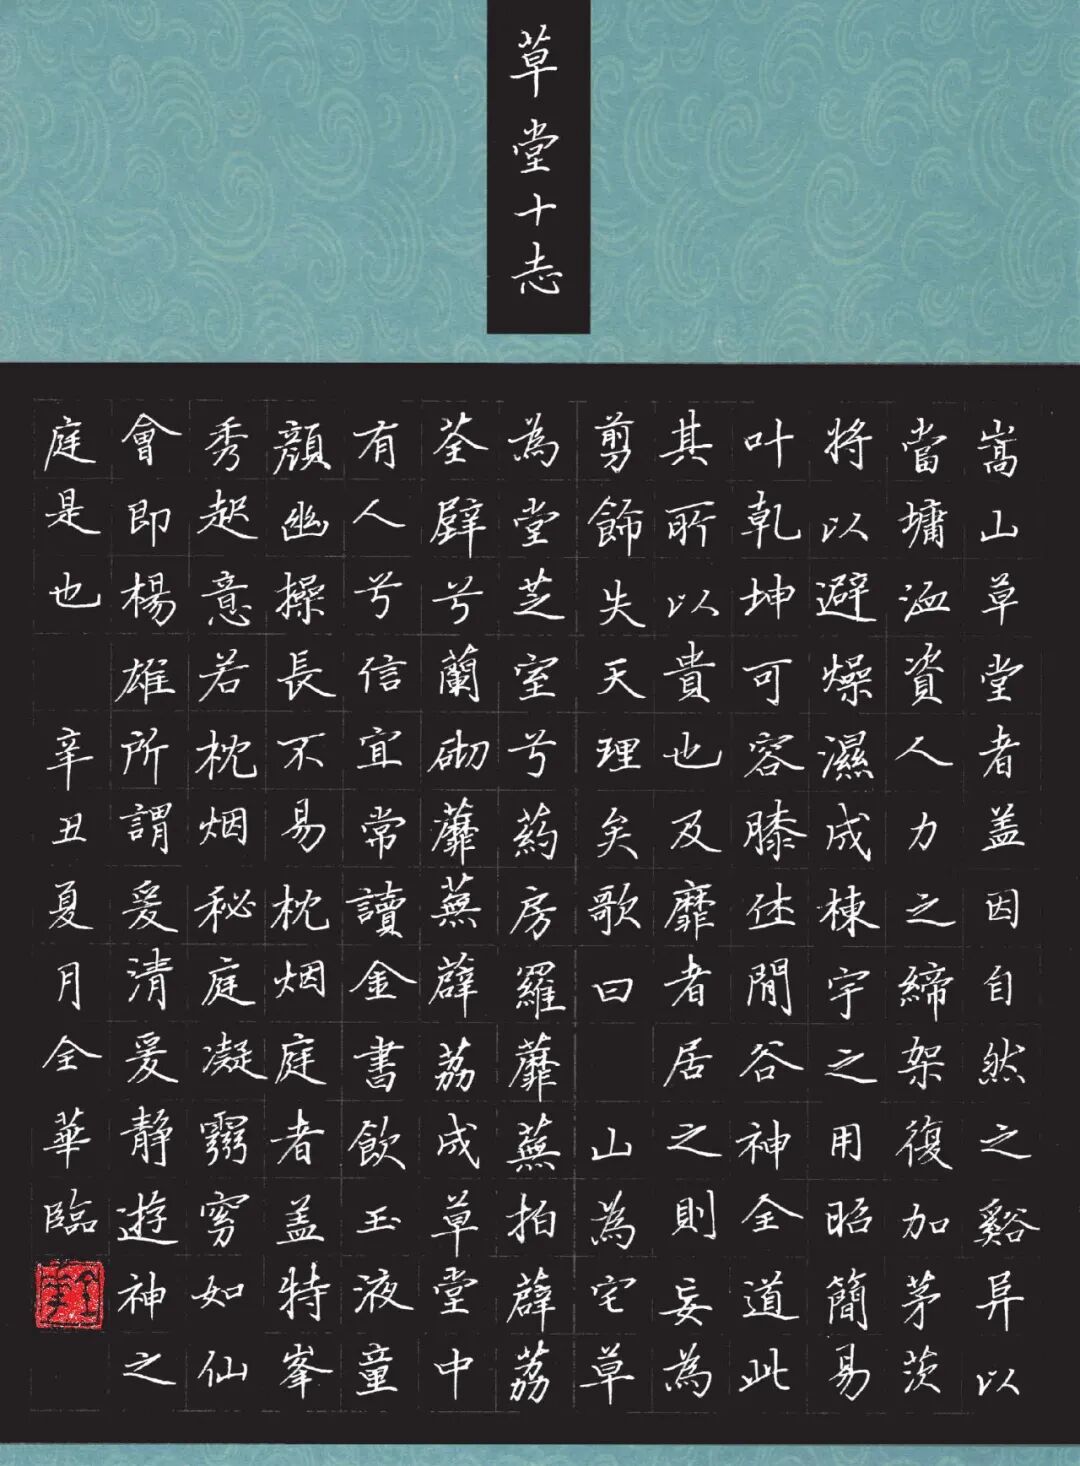 草堂十志
嵩山草堂者盖因自然之谿异以
當墉洫資人力之締架復加茅茨
将以避燥濕成棟宇之用昭簡易
叶乾坤可容膝休閒谷神全道此
其所以貴也及靡者居之則妄為
剪飾失天理矣歌曰 山為宅草
為堂芝室兮葯房羅蘼蕪拍薜荔
荃壁兮蘭砌蘼蕪薜荔成草堂中
有人兮信宜常讀金書飲玉液童
顏幽操長不易枕烟庭者盖特峯
秀起意若枕烟秘庭凝窅如仙
會即楊雄所謂爰清爰静遊神之
庭是也 辛丑夏月全華臨